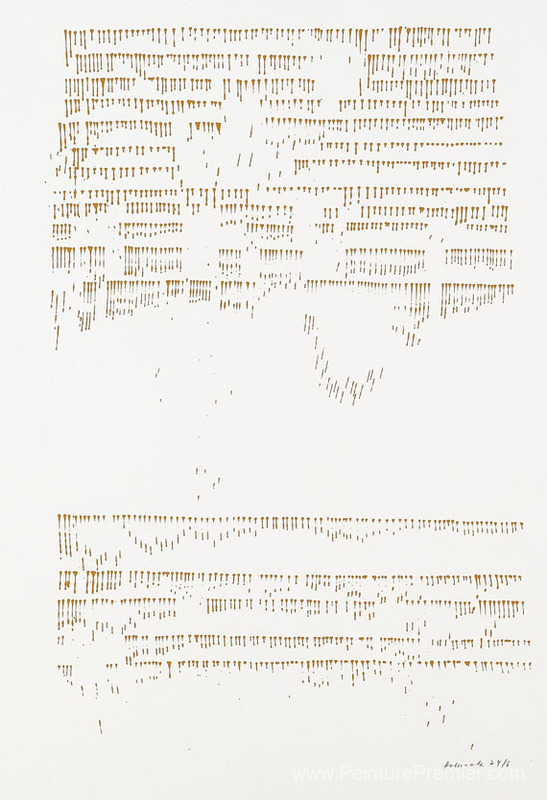 24/6
www.PeinturePremier.com